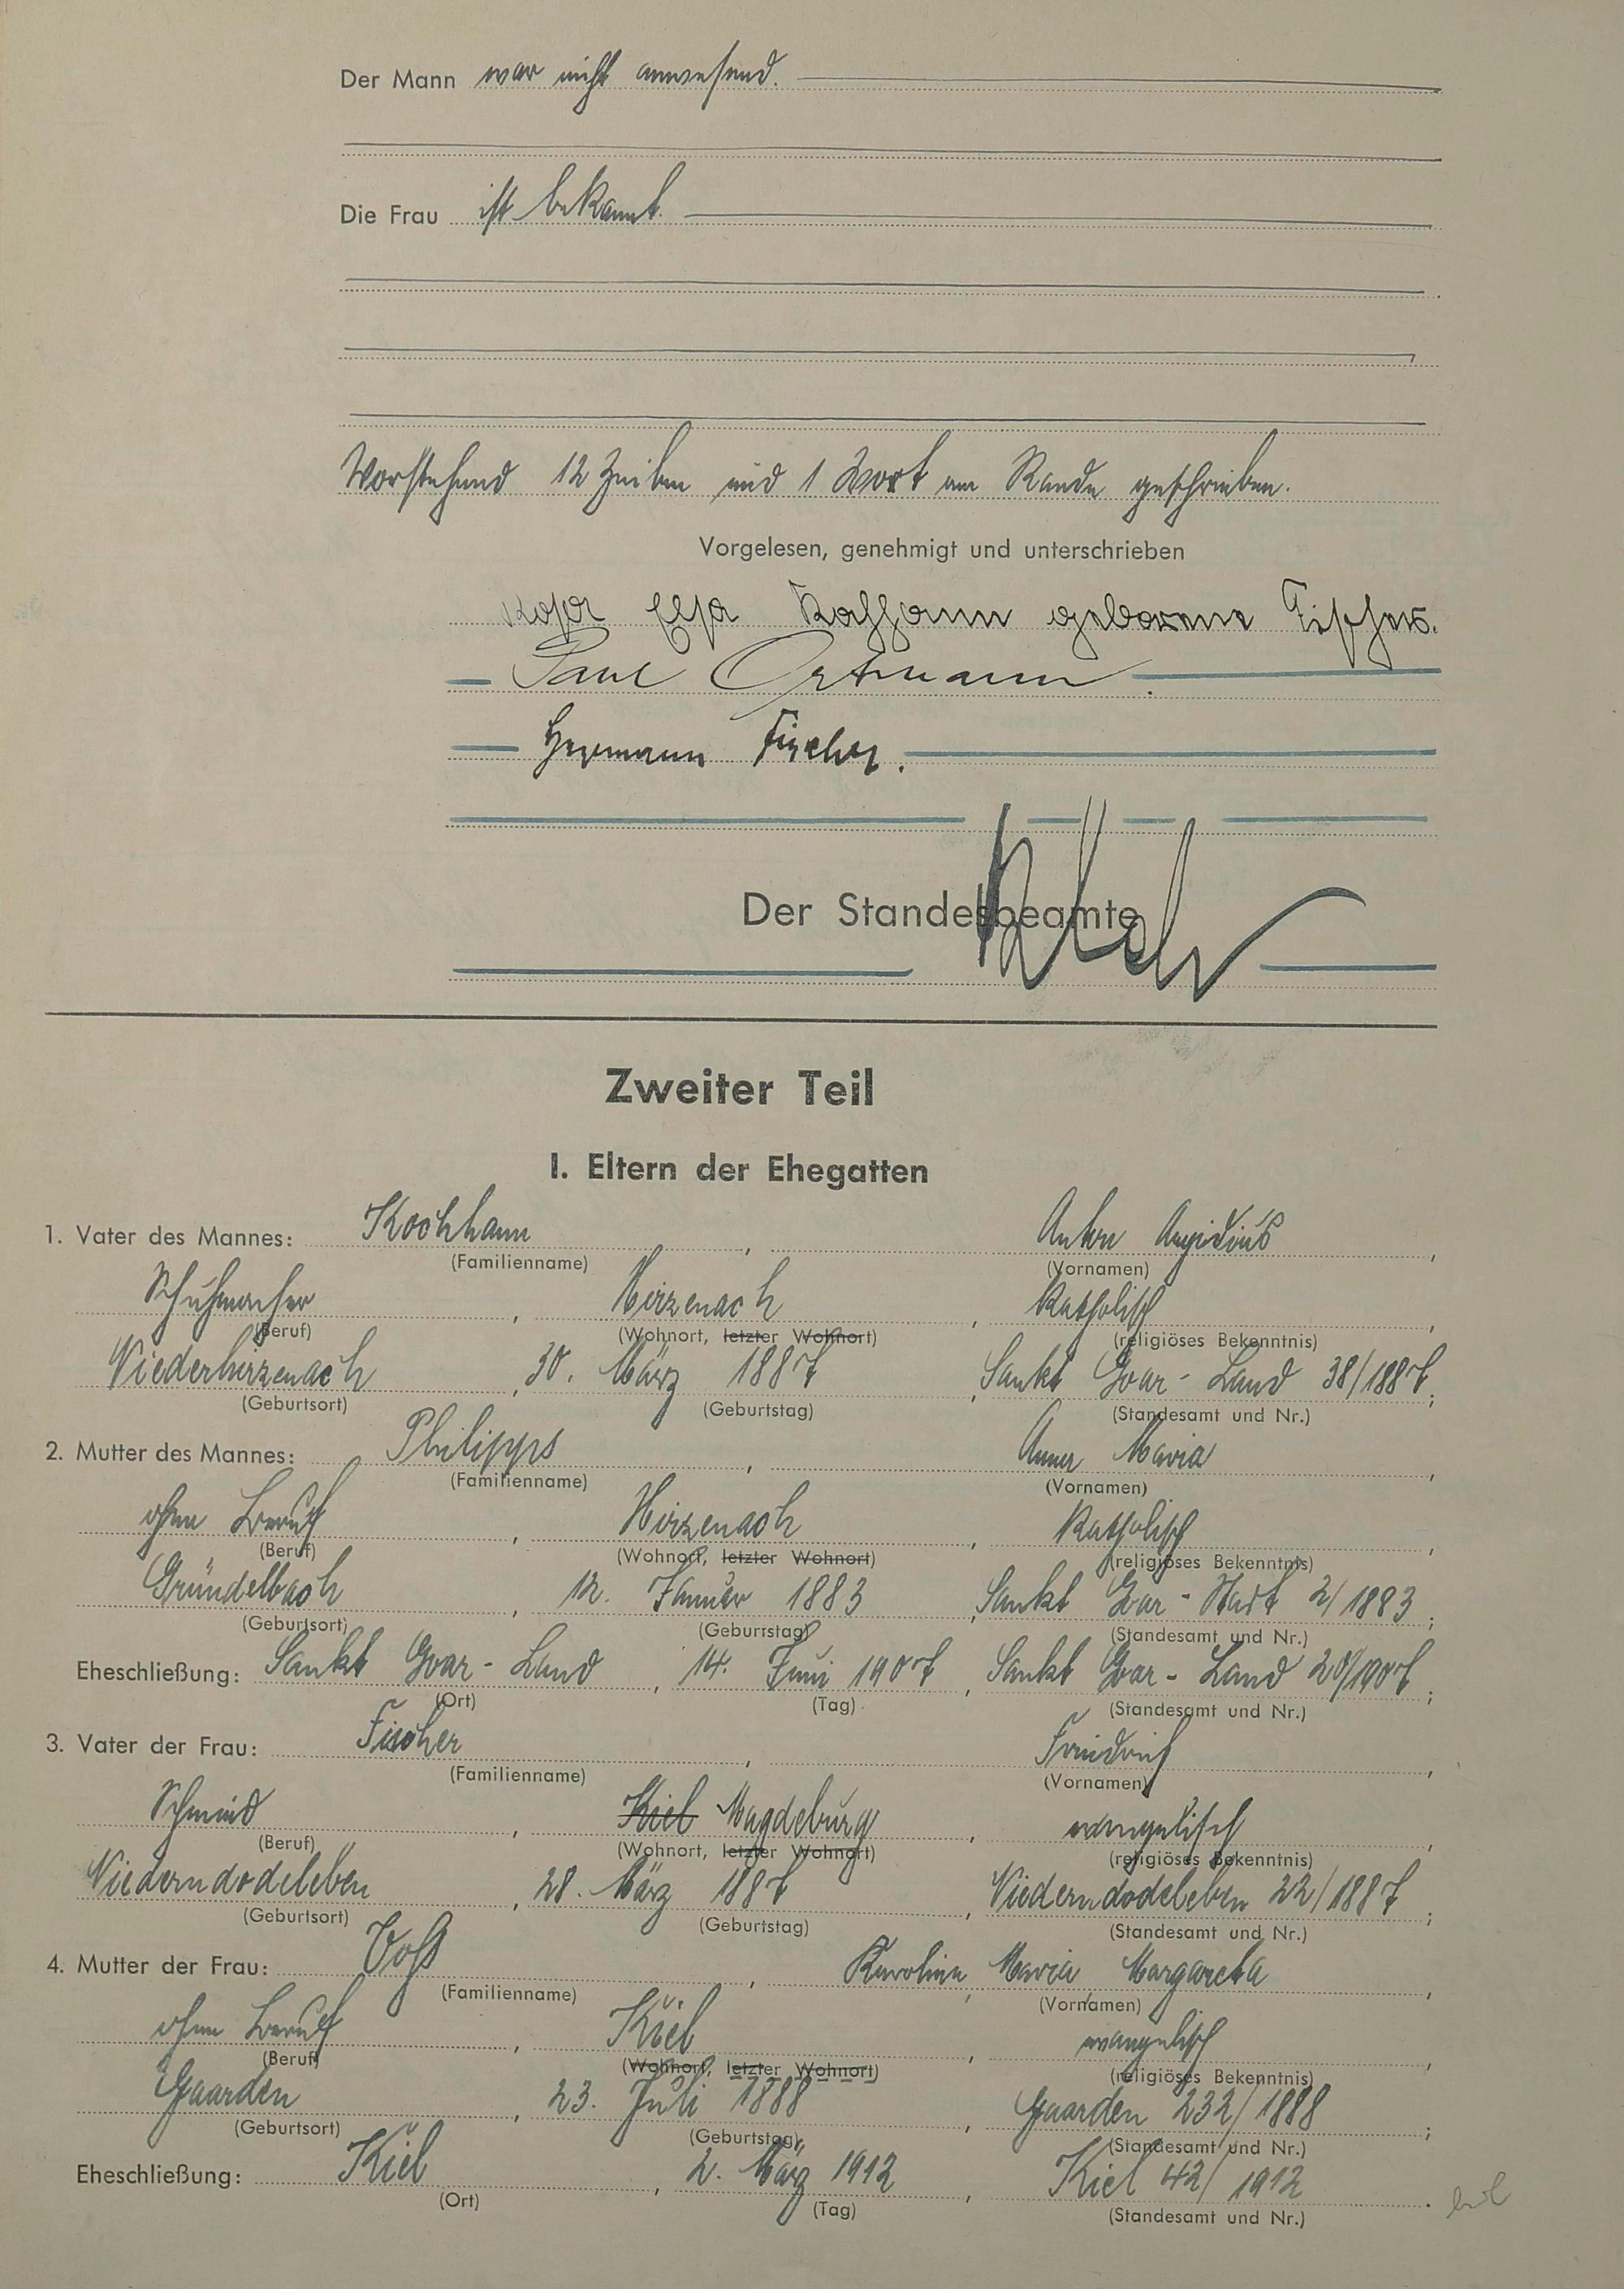 Der Mann war nicht anwesend.
Die Frau ist bekannt.
Vorstehend 12 Zeilen und 1 Wort am Rande geschrieben.
Vorgelesen, genehmigt und unterschrieben
Rosa Elsa Kochhann geborene Fischer.
Paul Ortmann.
Hermann Fischer.
Der Standesbeamte
Zweiter Teil
I. Eltern der Ehegatten
1. Vater des Mannes: Kochhann, Anton Aegidius,
(Familienname) (Vornamen)
Schuhmacher, Hirzenach, katholisch,
(Beruf) (Wohnort, letzter Wohnort) (religiöses Bekenntnis)
Niederhirzenach, 30. März 1887, Sankt Goar-Land 38/1887;
(Geburtsort) (Geburtstag) (Standesamt und Nr.)
2. Mutter des Mannes: Philipps, Anna Maria,
(Familienname) (Vornamen)
ohne Beruf, Hirzenach, katholisch,
(Beruf) (Wohnort, letzter Wohnort) (religiöses Bekenntnis)
Gründelbach, 12. Januar 1883, Sankt Goar-Stadt 2/1883;
(Geburtsort) (Geburtstag) (Standesamt und Nr.)
Eheschließung: Sankt Goar-Land, 14. Juni 1907, Sankt Goar-Land 20/1907;
(Ort) (Tag) (Standesamt und Nr.)
3. Vater der Frau: Fischer, Friedrich,
(Familienname) (Vornamen)
Schmied, Kiel Magdeburg, evangelisch,
(Beruf) (Wohnort, letzter Wohnort) (religiöses Bekenntnis)
Niederndodeleben, 28. März 1887, Niederndodeleben 22/1887;
(Geburtsort) (Geburtstag) (Standesamt und Nr.)
4. Mutter der Frau: Voß, Karoline, Maria Margareta,
(Familienname) (Vornamen)
ohne Beruf, Kiel, evangelisch,
(Beruf) (Wohnort, letzter Wohnort) (religiöses Bekenntnis)
Gaarden, 23. Juli 1888, Gaarden 232/1888;
(Geburtsort) (Geburtstag) (Standesamt und Nr.)
Eheschließung: Kiel, 2. März 1912, Kiel 42/1912.
(Ort) (Tag) (Standesamt und Nr.)